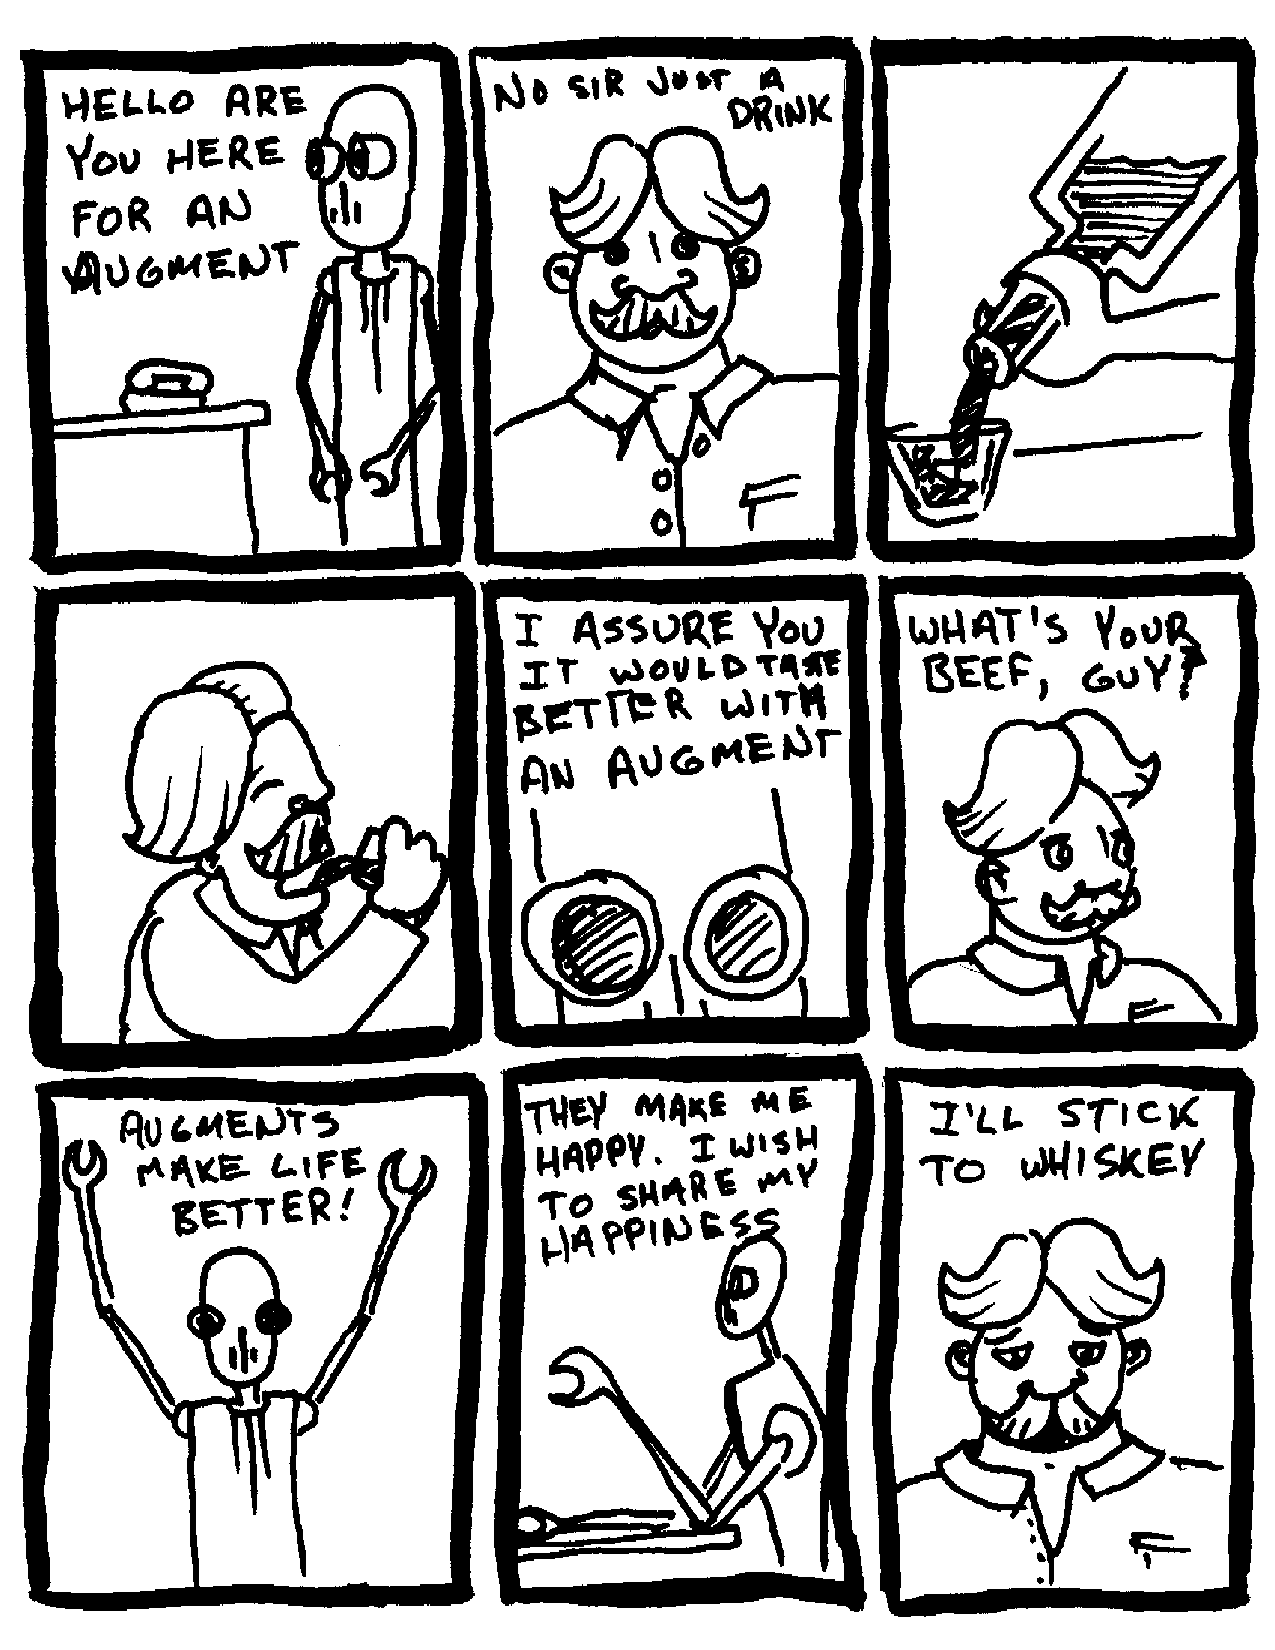 HELLO ARE
YOU HERE
FOR AN
AUGMENT
NO SIR JUST A
DRINK
I ASSURE YOU
IT WOULD TASTE
BETTER WITH
AN AUGMENT
WHAT'S YOUR
BEEF, GUY?
AUGMENTS
MAKE LIFE
BETTER!
THEY MAKE ME
HAPPY. I WISH
TO SHARE MY
HAPPINESS
I'LL STICK
TO WHISKEY